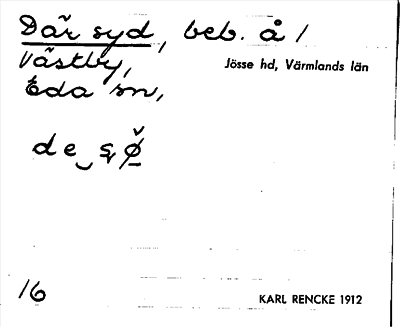 Där syd, beb. å /
Västby, Jösse hd, Värmlands län
Eda sn,
16
KARL RENCKE 1912